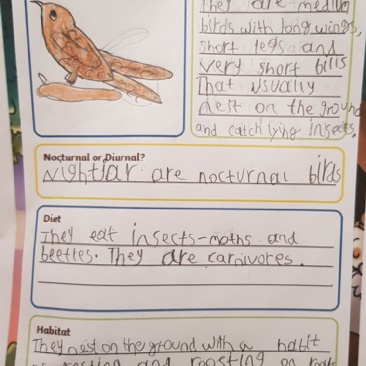 They are medium
birds with long wings,
short legs and
very short bills
That usually
nest on the ground
and catch lying insects.
Nocturnal or Diurnal?
Nightjar are nocturnal birds
Diet
They eat insects-moths and
beettes. They are carnivores.
Habitat
They nest on the ground with a habit
resting and roosting on